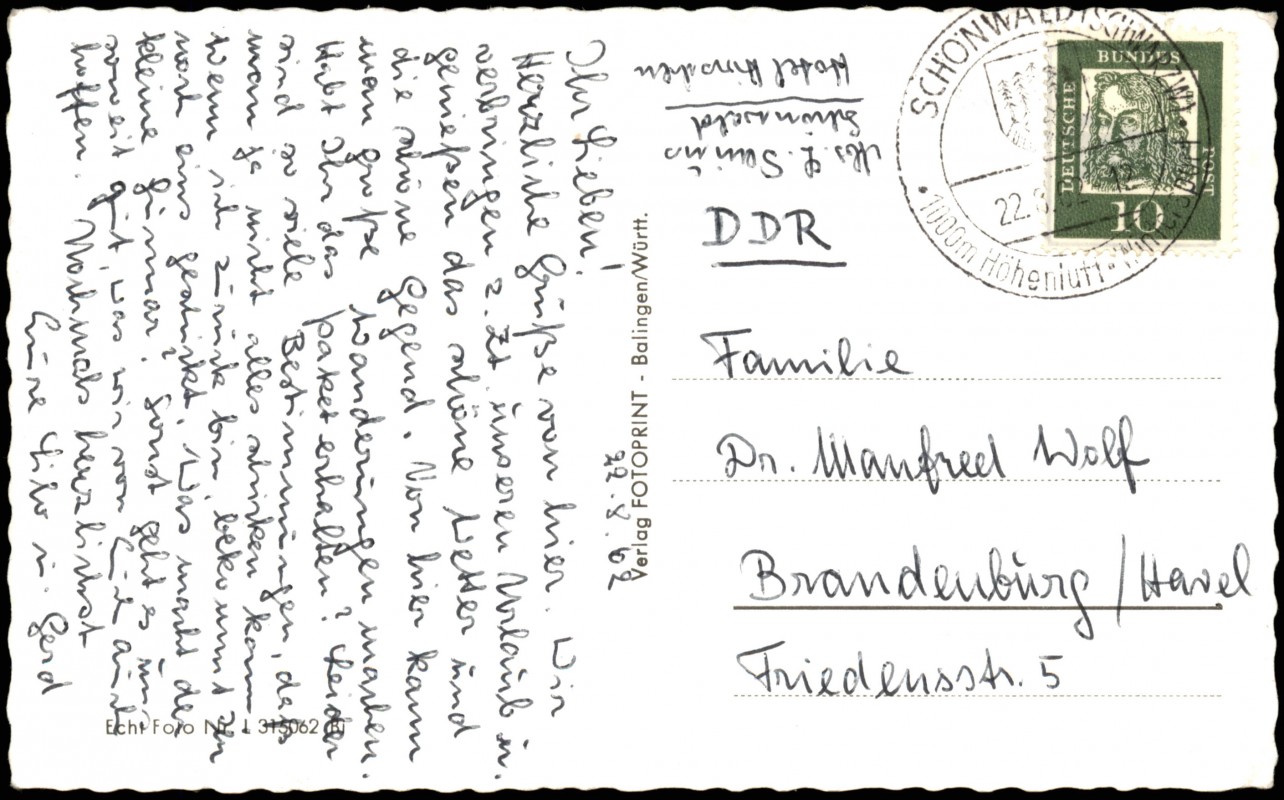 Ihr Lieben!
Herzliche Grüße von hier. Wir
verbringen z. Zt. unseren Urlaub u.
genießen das schöne Wetter und
die schöne Gegend. Von hier kann
man große Wanderungen machen.
Habt Ihr das Paket erhalten? Leider
sind so viele Bestimmungen, dass
man ja nicht alles schicken kann
Wenn ich zurück bin, bekommt Ihr
noch eins geschickt. Was macht der
kleine Gunnar? Sonst geht es uns
soweit gut, was wir von Euch auch
hoffen. Nochmals herzlichst
Eure Lilo u. Gerd
22.8.62
Verlag FOTOPRINT - Balingen/Württ.
Echt Foto Nr. L 315062 Bi
Abs. L.
Schönwald
Hotel
DDR
Familie
Dr. Manfred Wolf
Brandenburg/Havel
Friedensstr. 5
SCHÖNWALD (SCHWARZW)
22.8.
1000m Höhenluft · Wintersport
DEUTSCHE BUNDESPOST
10